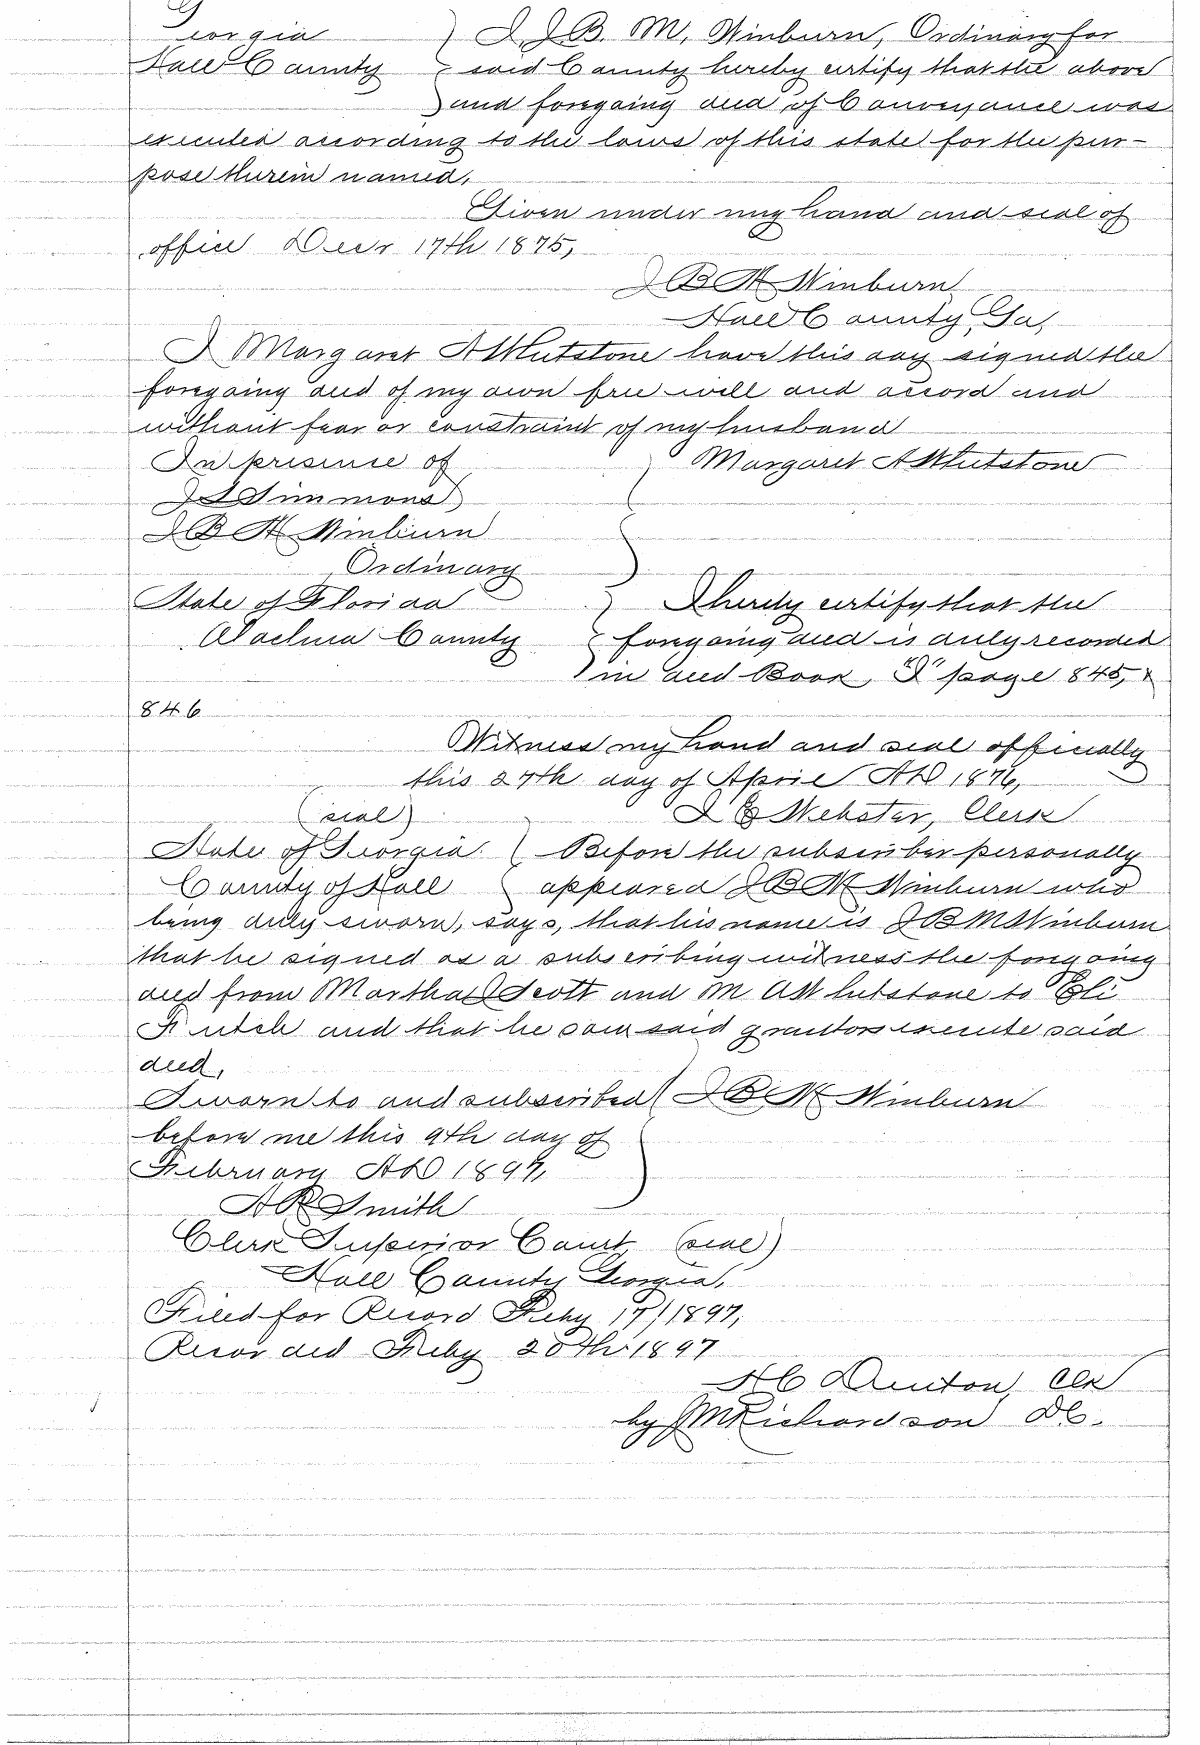 Georgia } I J. B. M. Winburn, Ordinary for
Hall County } said County hereby certify that the above
} and foregoing deed of Conveyance was
executed according to the laws of this state for the pur-
pose therein named,
Given under my hand and seal of
office Decr 17th 1875,
J B M Winburn
Hall County, Ga,
I Margaret A Whetstone have this day signed the
foregoing deed of my own free will and accord and
without fear or constraint of my husband
In presence of } Margaret A Whetstone
Simmons
J B M Winburn
Ordinary
State of Florida } I hereby certify that the
Alachua County } foregoing deed is duly recorded
) in deed Book, "I" page 845, &
846
Witness my hand and seal officially
this 27th day of April AD 1876,
(seal) J C Webster, Clerk
State of Georgia } Before the subscriber personally
County of Hall } appeared J B M Winburn who
being duly sworn, says, that his name is J B M Winburn
that he signed as a subscribing witness the foregoing
deed from Martha J Scott and M A Whetstone to Eli
Futch and that he saw said grantors execute said
deed,
Sworn to and subscribed } J B M Winburn
before me this 9th day of
February AD 1897,
A R Smith
Clerk Superior Court (seal)
Hall County Georgia,
Filed for Record Feby 17/1897,
Recorded Feby 20th 1897
H C Denton, Clk
by J M Richardson DC.